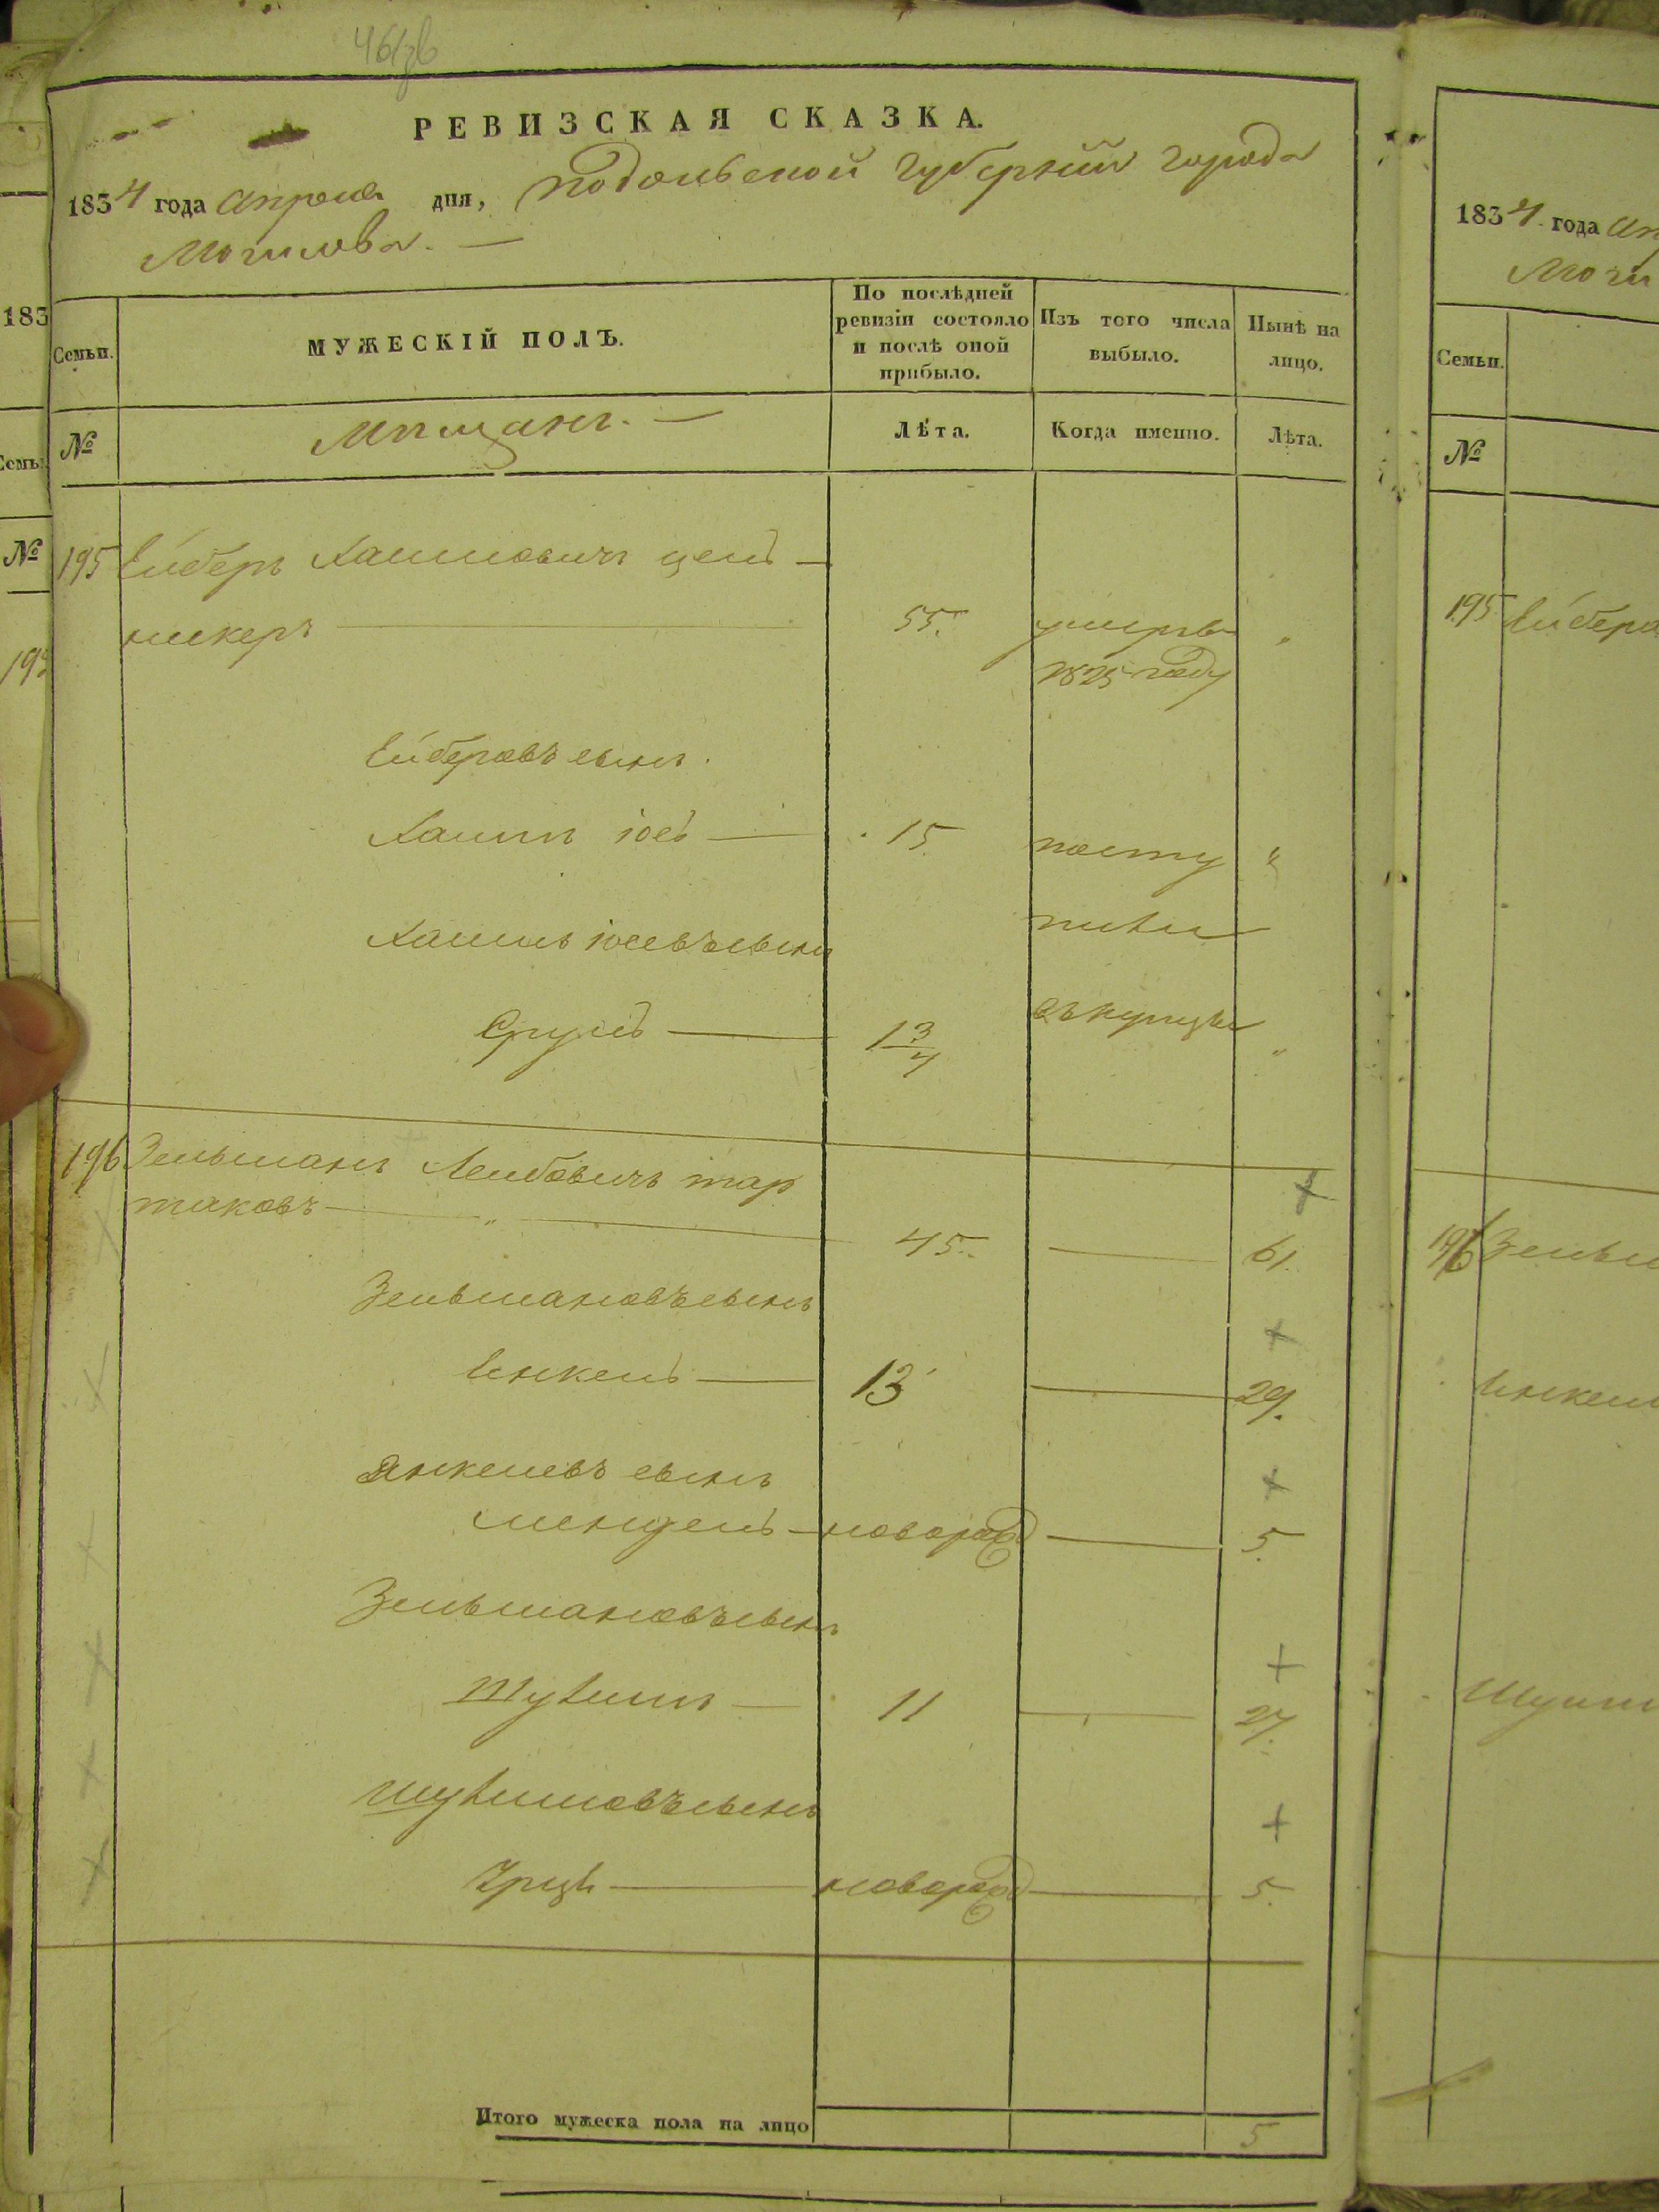 461об
РЕВИЗСКАЯ СКАЗКА.
1834 года апреля дня, подольской губернии города
Могилова. —
Семьи.
МУЖЕСКІЙ ПОЛЪ.
По послѣдней ревизіи состояло и послѣ оной прибыло.
Изъ того числа выбыло.
Нынѣ на лицо.
№
Мѣщанъ. —
Лѣта.
Когда именно.
Лѣта.
195 Лейберъ Хаимовичъ цел
никеръ 55. умеръ в
1825 году
Лейберовъ сынъ.
Хаимъ іос 15 посту
Хаимъ іосевъ сынъ пили
Срулъ 1 3/4 въ купцы
196 Зельманъ Лейбовичъ тар
таковъ 45. 61.
Зельмановъ сынъ
Янкель 13 29.
Янкелевъ сынъ
Мендель новорожд 5.
Зельмановъ сынъ
Шулимъ 11 27.
Шулимовъ сынъ
Урць новорожд 5.
Итого мужеска пола на лицо 5
1834. года Ап
Моги
Семьи.
№
195 Лейбера
196 Зельм
Янкел
Шулим
183
№